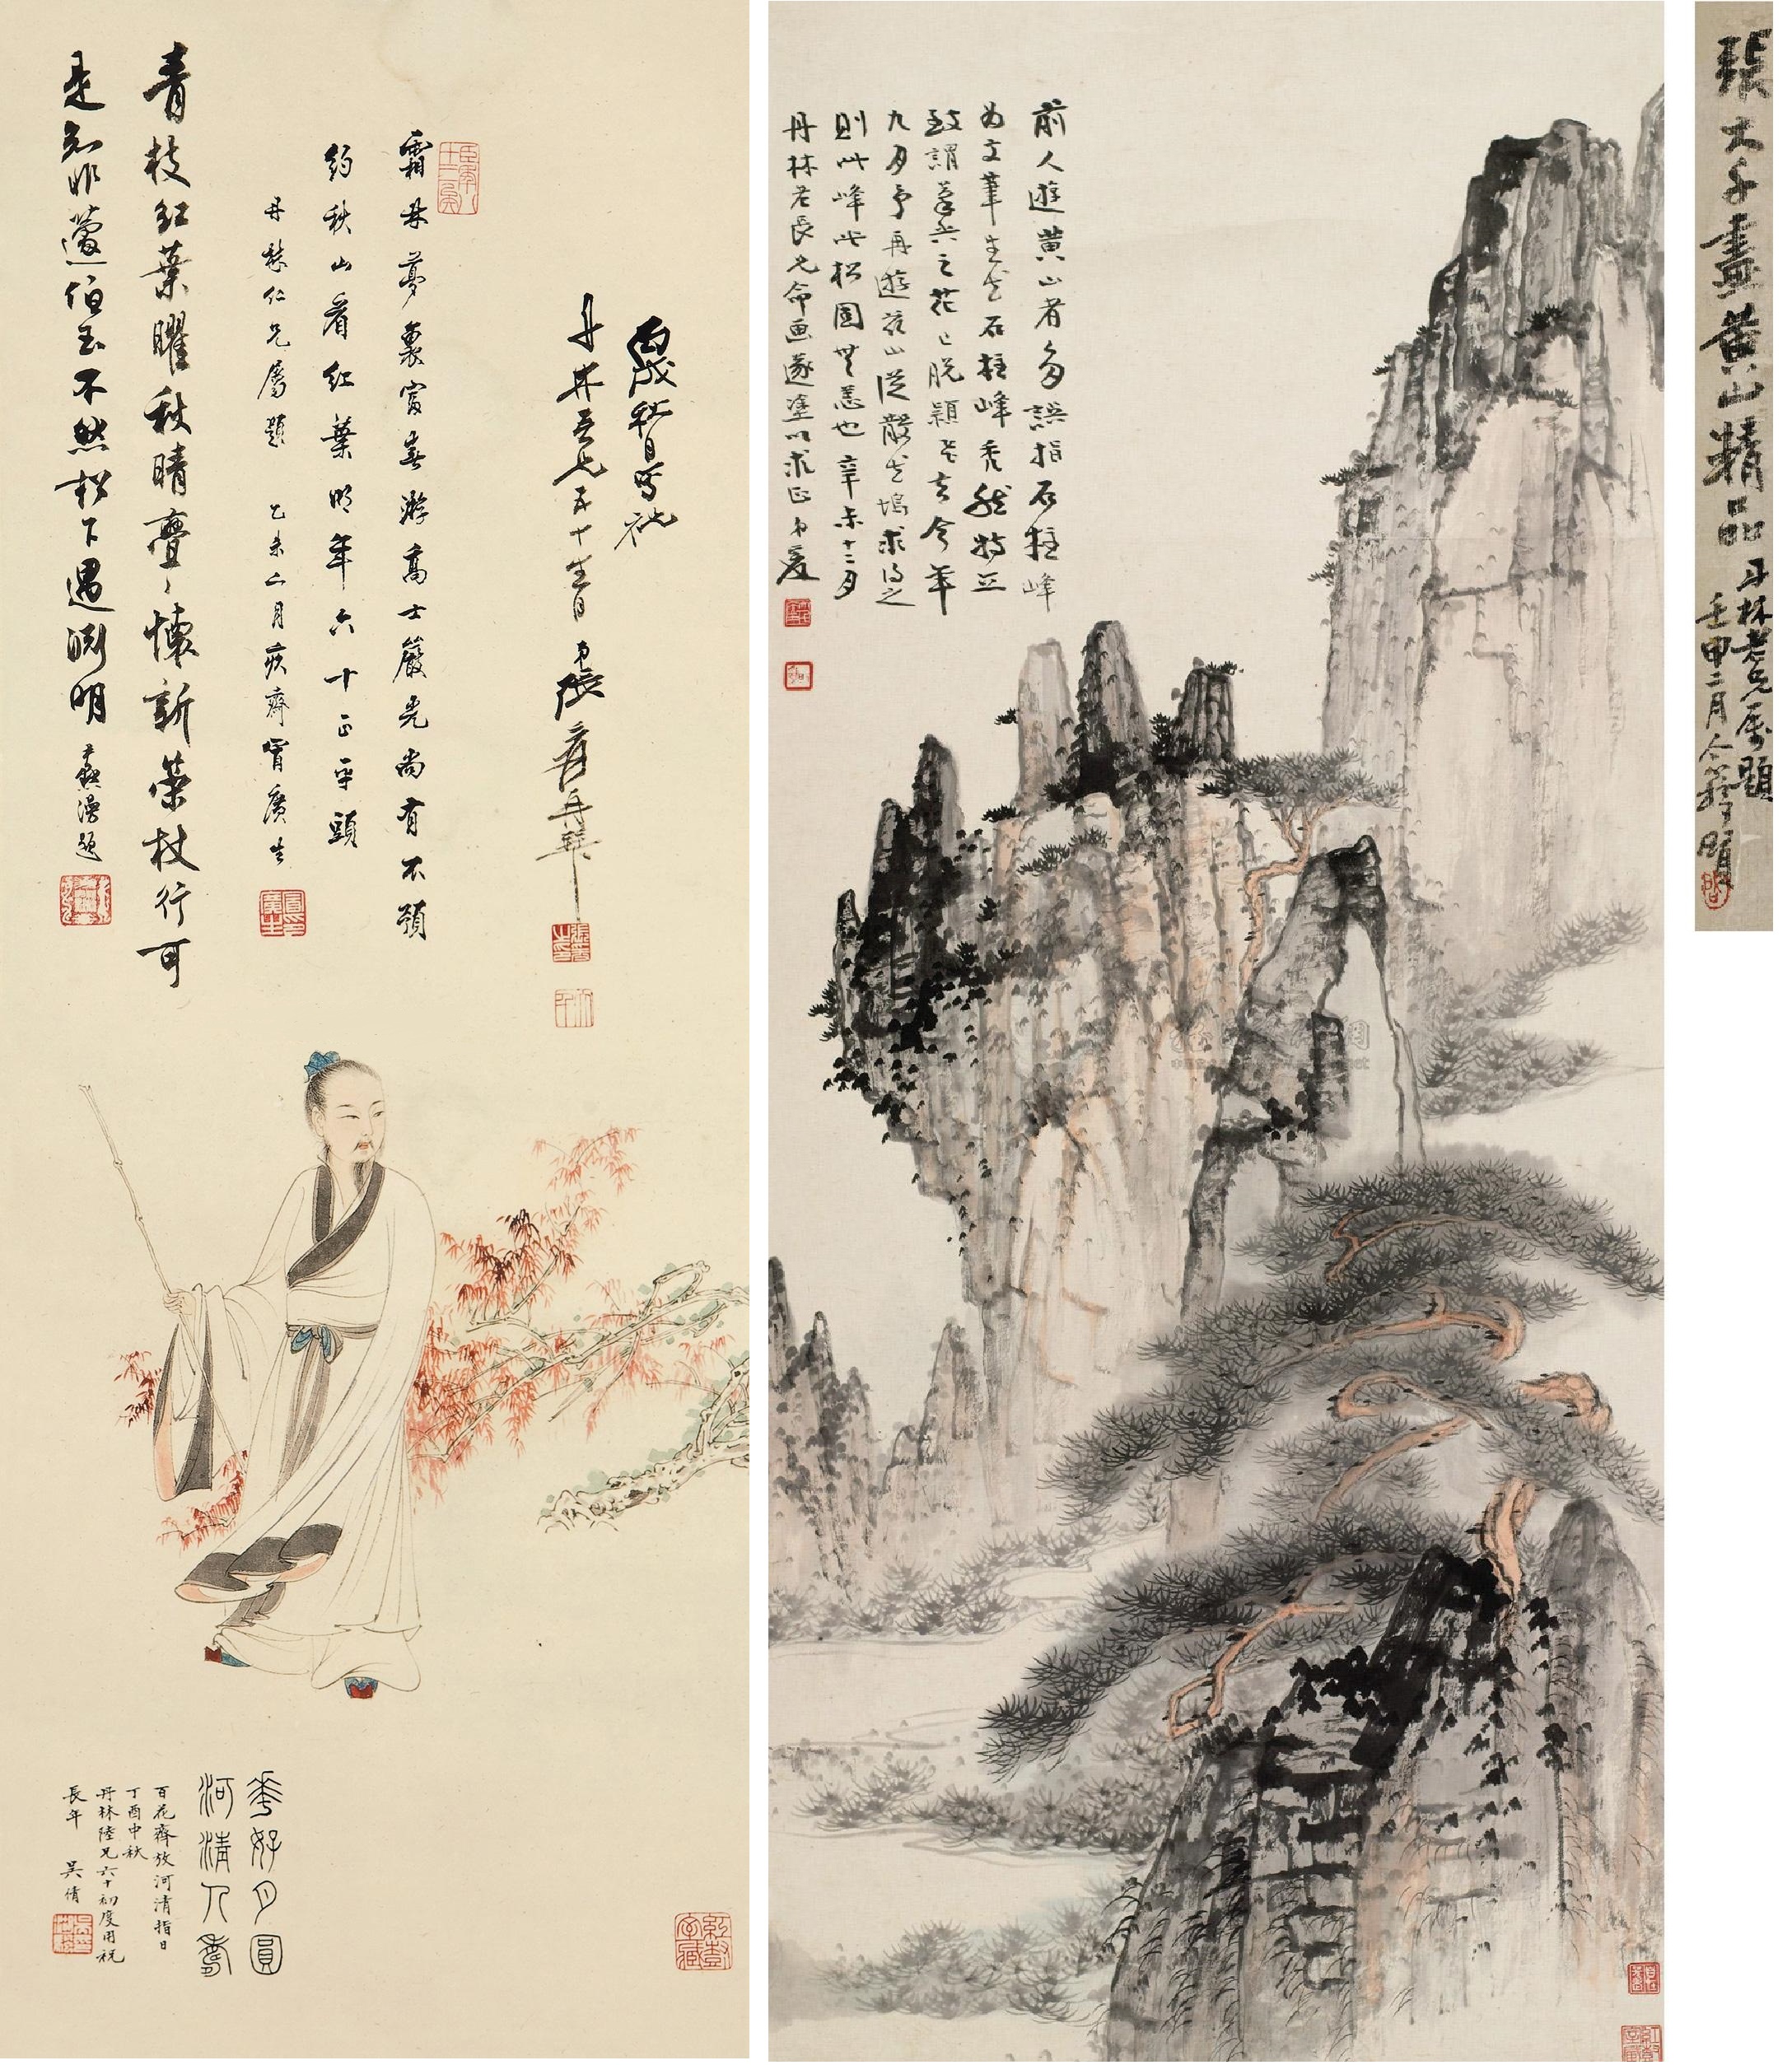 丙戌秋日寫祝
丹林吾兄五十生日 弟張爰再拜
霜林夢裏富春游高士嚴光尚有不預
約秋山看紅葉明年六十正平頭
丹林仁兄屬題 乙未二月疚齋冒廣生
青枝紅葉曜秋晴亹〻懷新策杖行可
是知非蘧伯玉不然松下遇淵明 漫題
華好月圓
河清人壽
百花齊放河清指日
丁酉中秋
丹林陸兄六十初度用祝
長年 吳倩
前人遊黃山者多誤指石柱峰
為文筆生花石柱峰禿然特立
致謂筆之花已脫穎飛去今年
九月予再遊茲山從散花塢求得之
則此峰此松固無恙也辛未十二月
丹林老長兄命画遂塗以求正 弟爰
張大千畫黃山精品
丹林老兄屬題
壬申二月